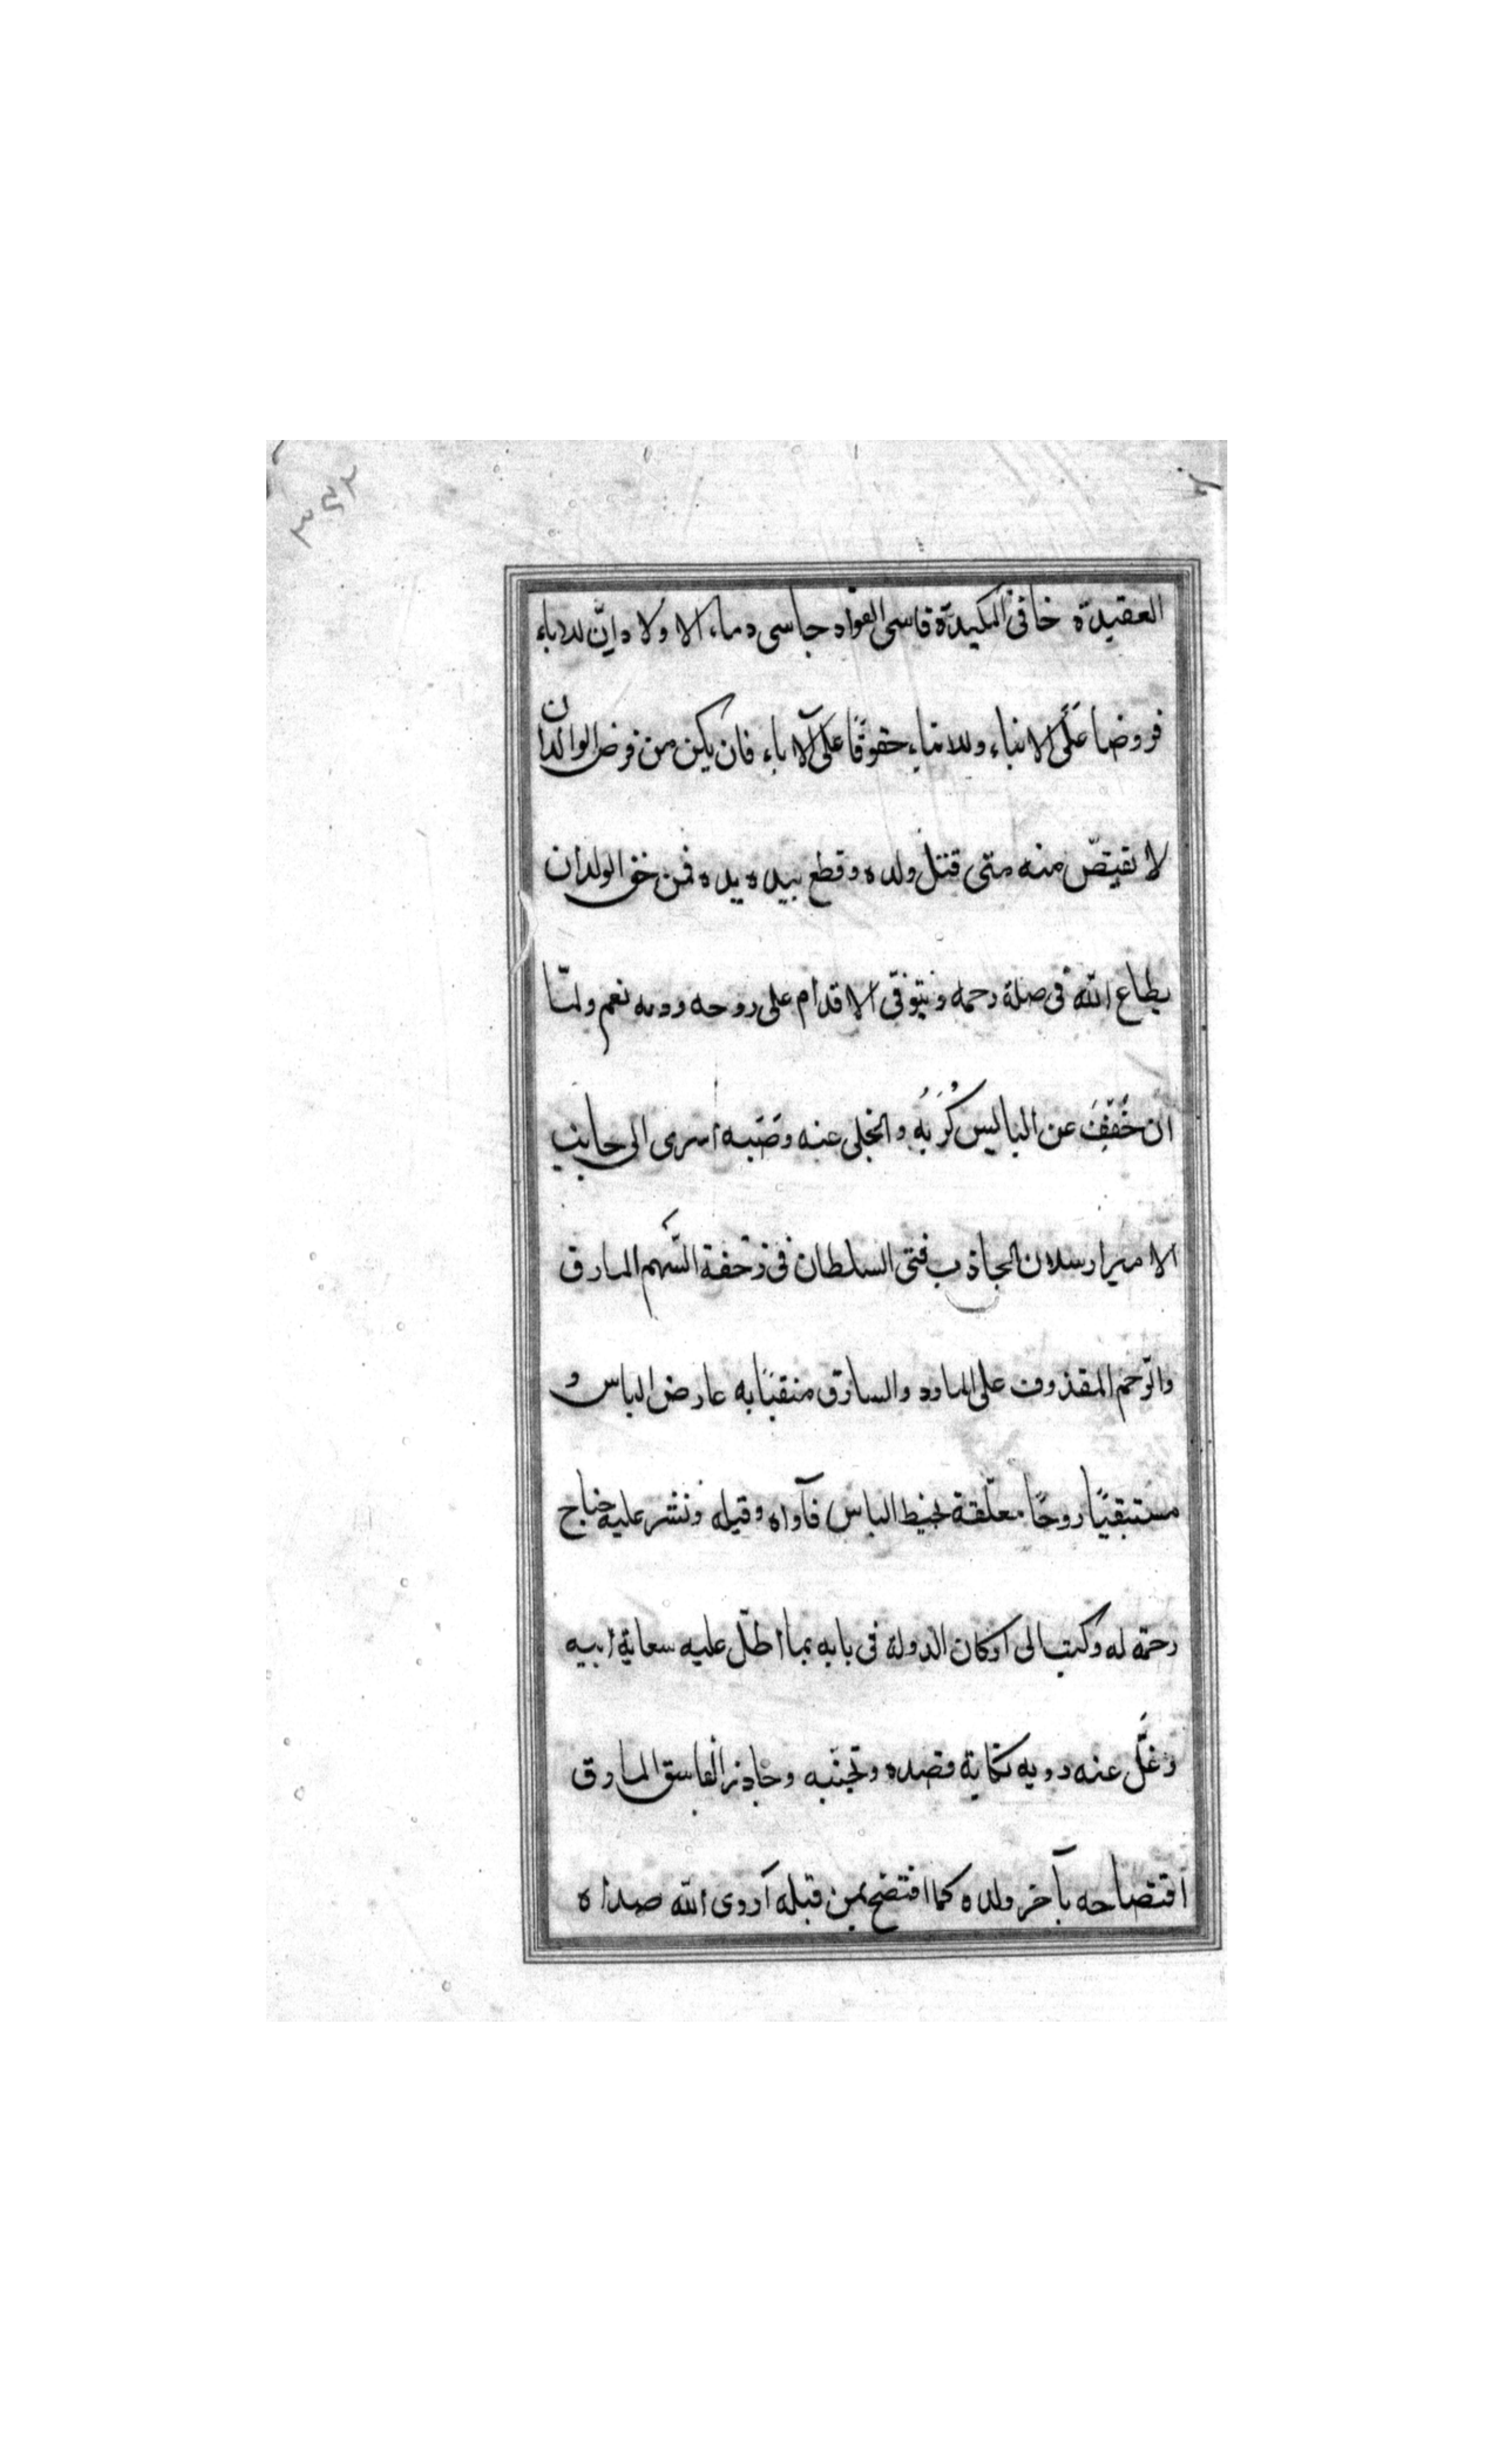 ٣٤٢
العقيدة خافى المكيدة قاسى الفواد جاسى دماء الاولاد وانّ للاباء
فروضا على الابناء وللابناء حقوقًا على الآباء فان يكن من فرض الوالدان
لا يقتصّ منه متى قتل ولده وقطع بيده يده فمن حق الولدان
يطاع الله فى صلة رحمه ويتوقى الاقدام على روحه ودمه نعم ولمّا
ان خُفِّفَ عن الباليس كُرَبُه وانجلى عنه وصَبه اسرى الى جانب
الامير ارسلان الجاذب فتى السلطان فى زحفة السّهم المارق
والرّجم المقذوف على المارد والسارق متقيًا به عارض الباس و
مستبقيًا روحًا معلّقة بخيط الياس فآواه وقبله ونشر عليه جناح
رحمة له وكتب الى اركان الدولة فى بابه بما اطلّ عليه سعاية ابيه
وغلّ عنه دويه نكاية قصده وتجنّبه وحاذر الفاسق المارق
افتضاحه بآخر ولده كما افتضح بمن قبله اروى الله صداه